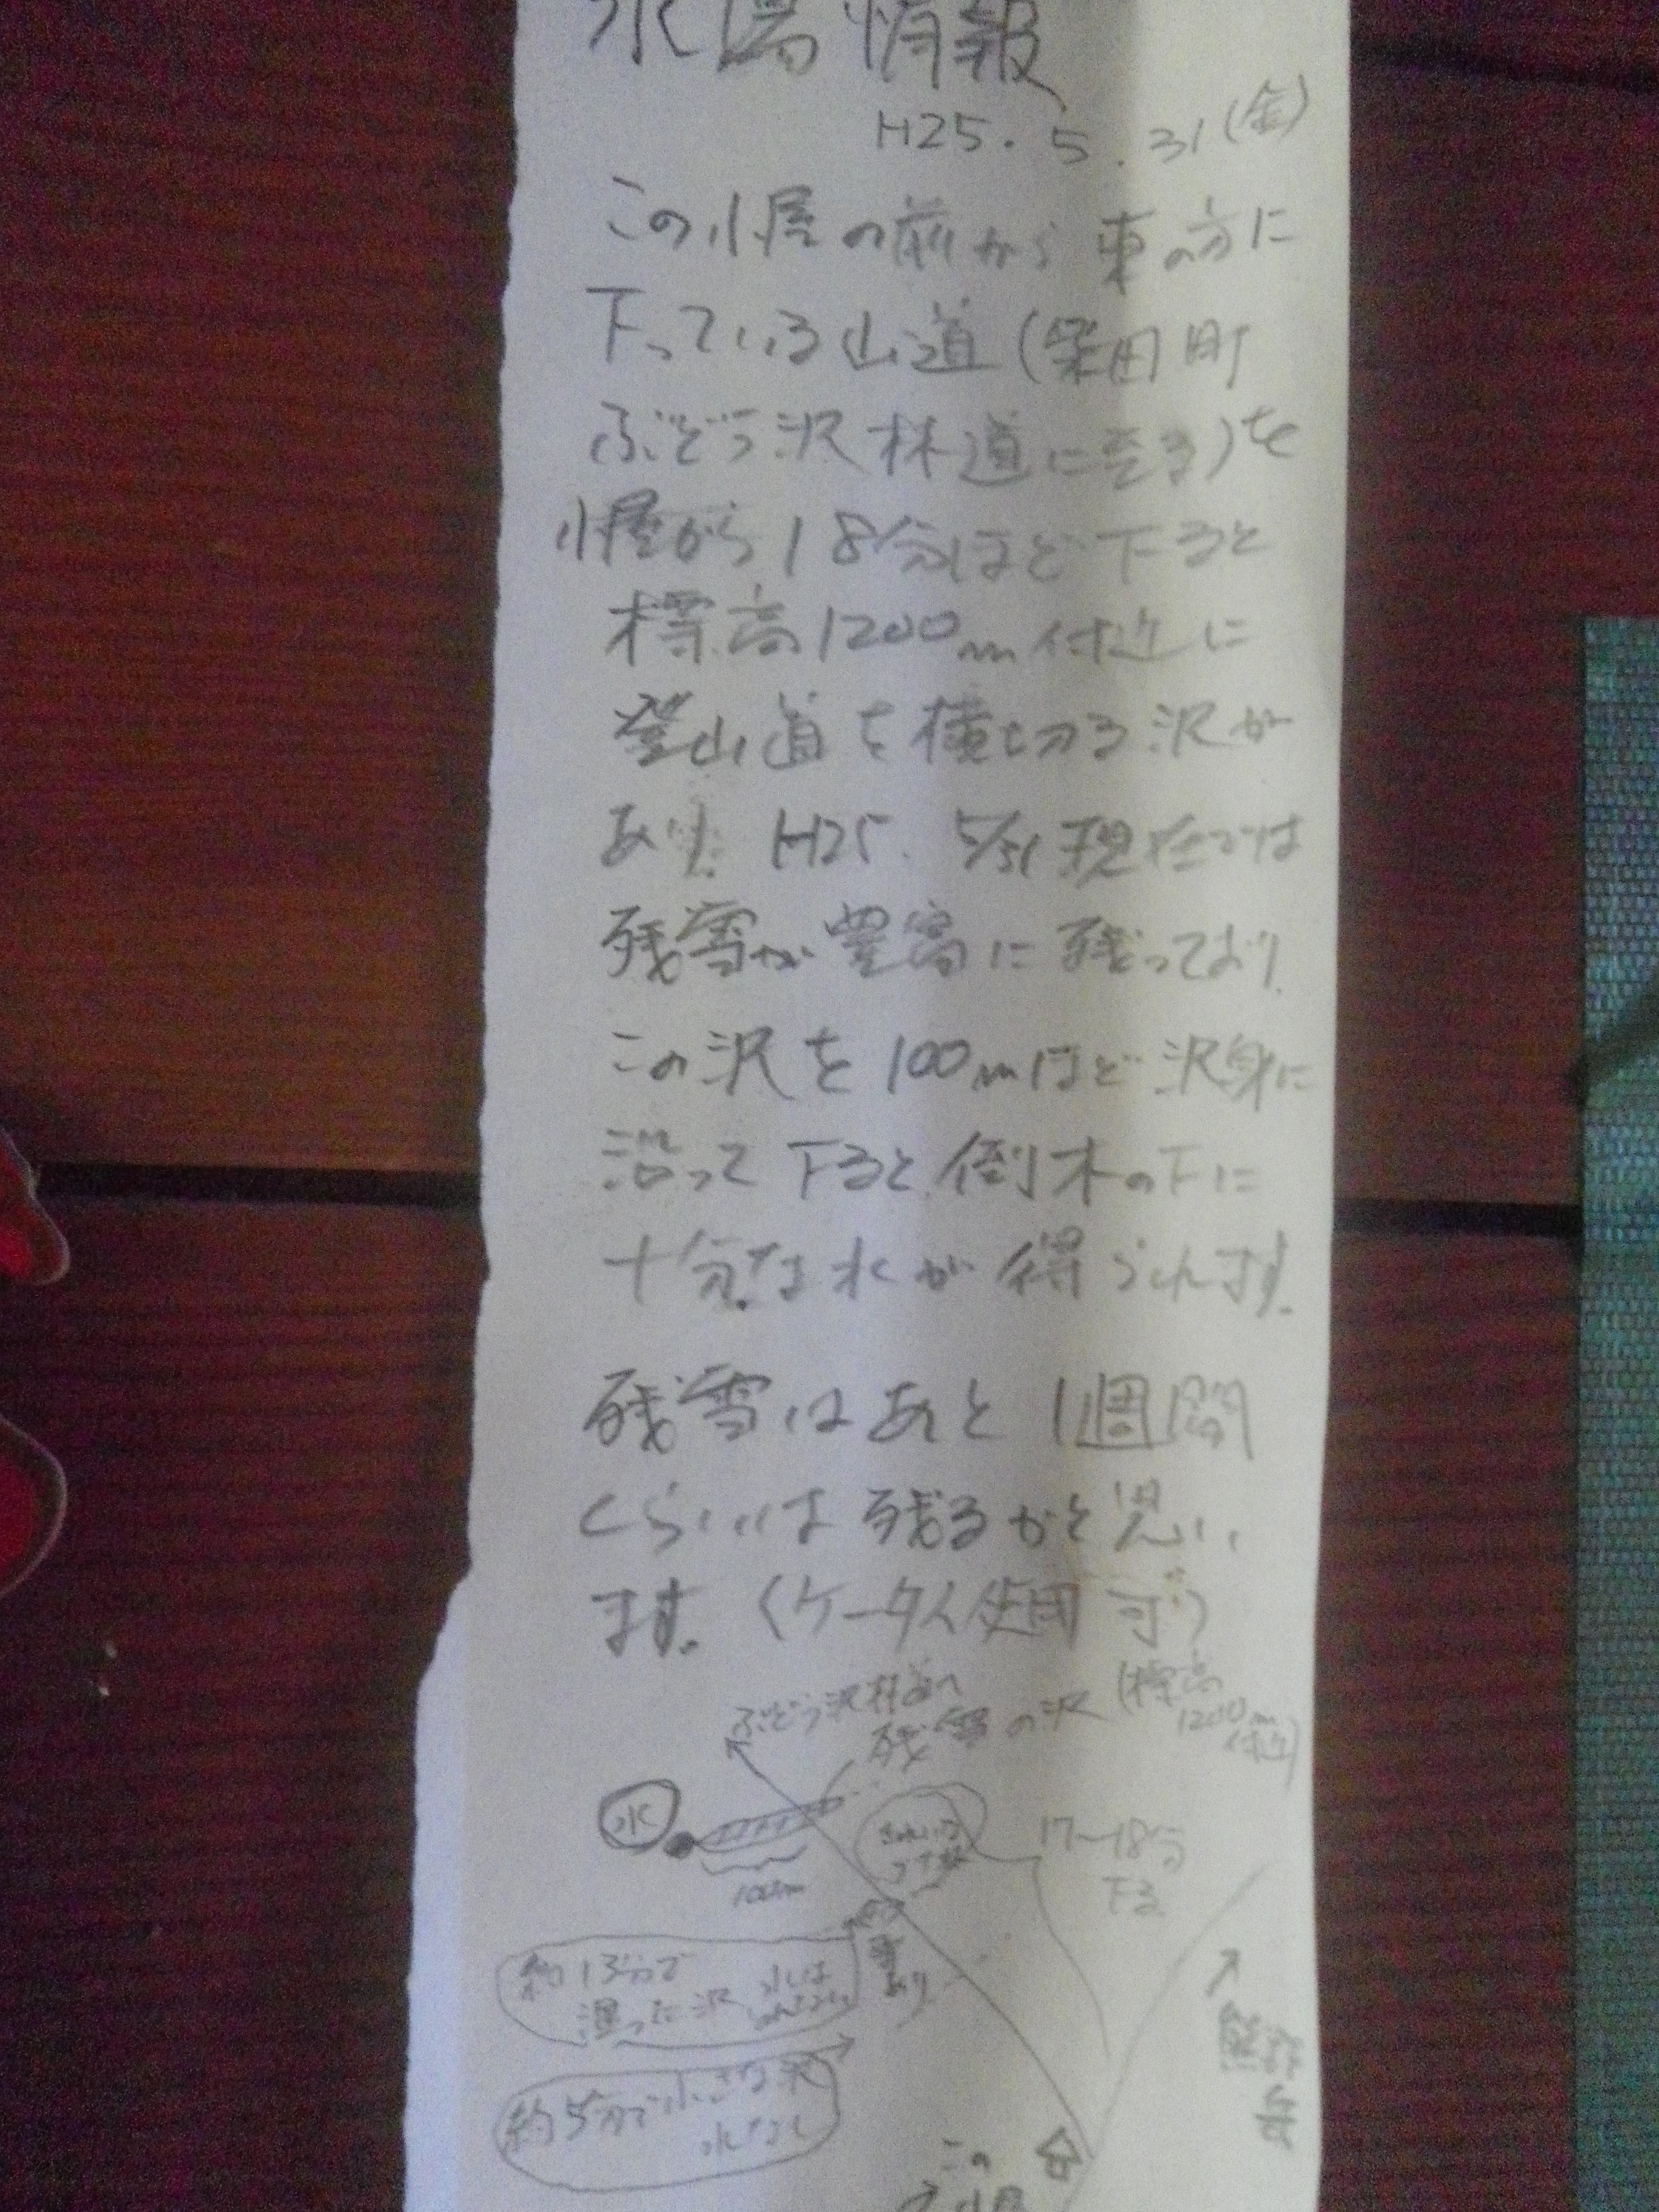 水場情報
H25.5.31(金)
この小屋の前から東の方に
下っている山道(柴田町
ぶどう沢林道に至る)を
小屋から18分ほど下ると
標高1200m付近に
登山道を横切る沢が
あり、H25.5/31現在では
残雪が豊富に残っており、
この沢を100mほど沢身に
沿って下ると、倒木の下に
十分な水が得られます。
残雪はあと1週間
くらいは残るかと思い
ます。(ケータイ使用可)
ぶどう沢林道へ
残雪の沢(標高
1200m
付近)
水
100m
きれいな
ブナ林
17〜18分
下る
約13分で
湿った沢 水は
雪あり
約5分で小さな沢
水なし
熊野
岳
この
小屋